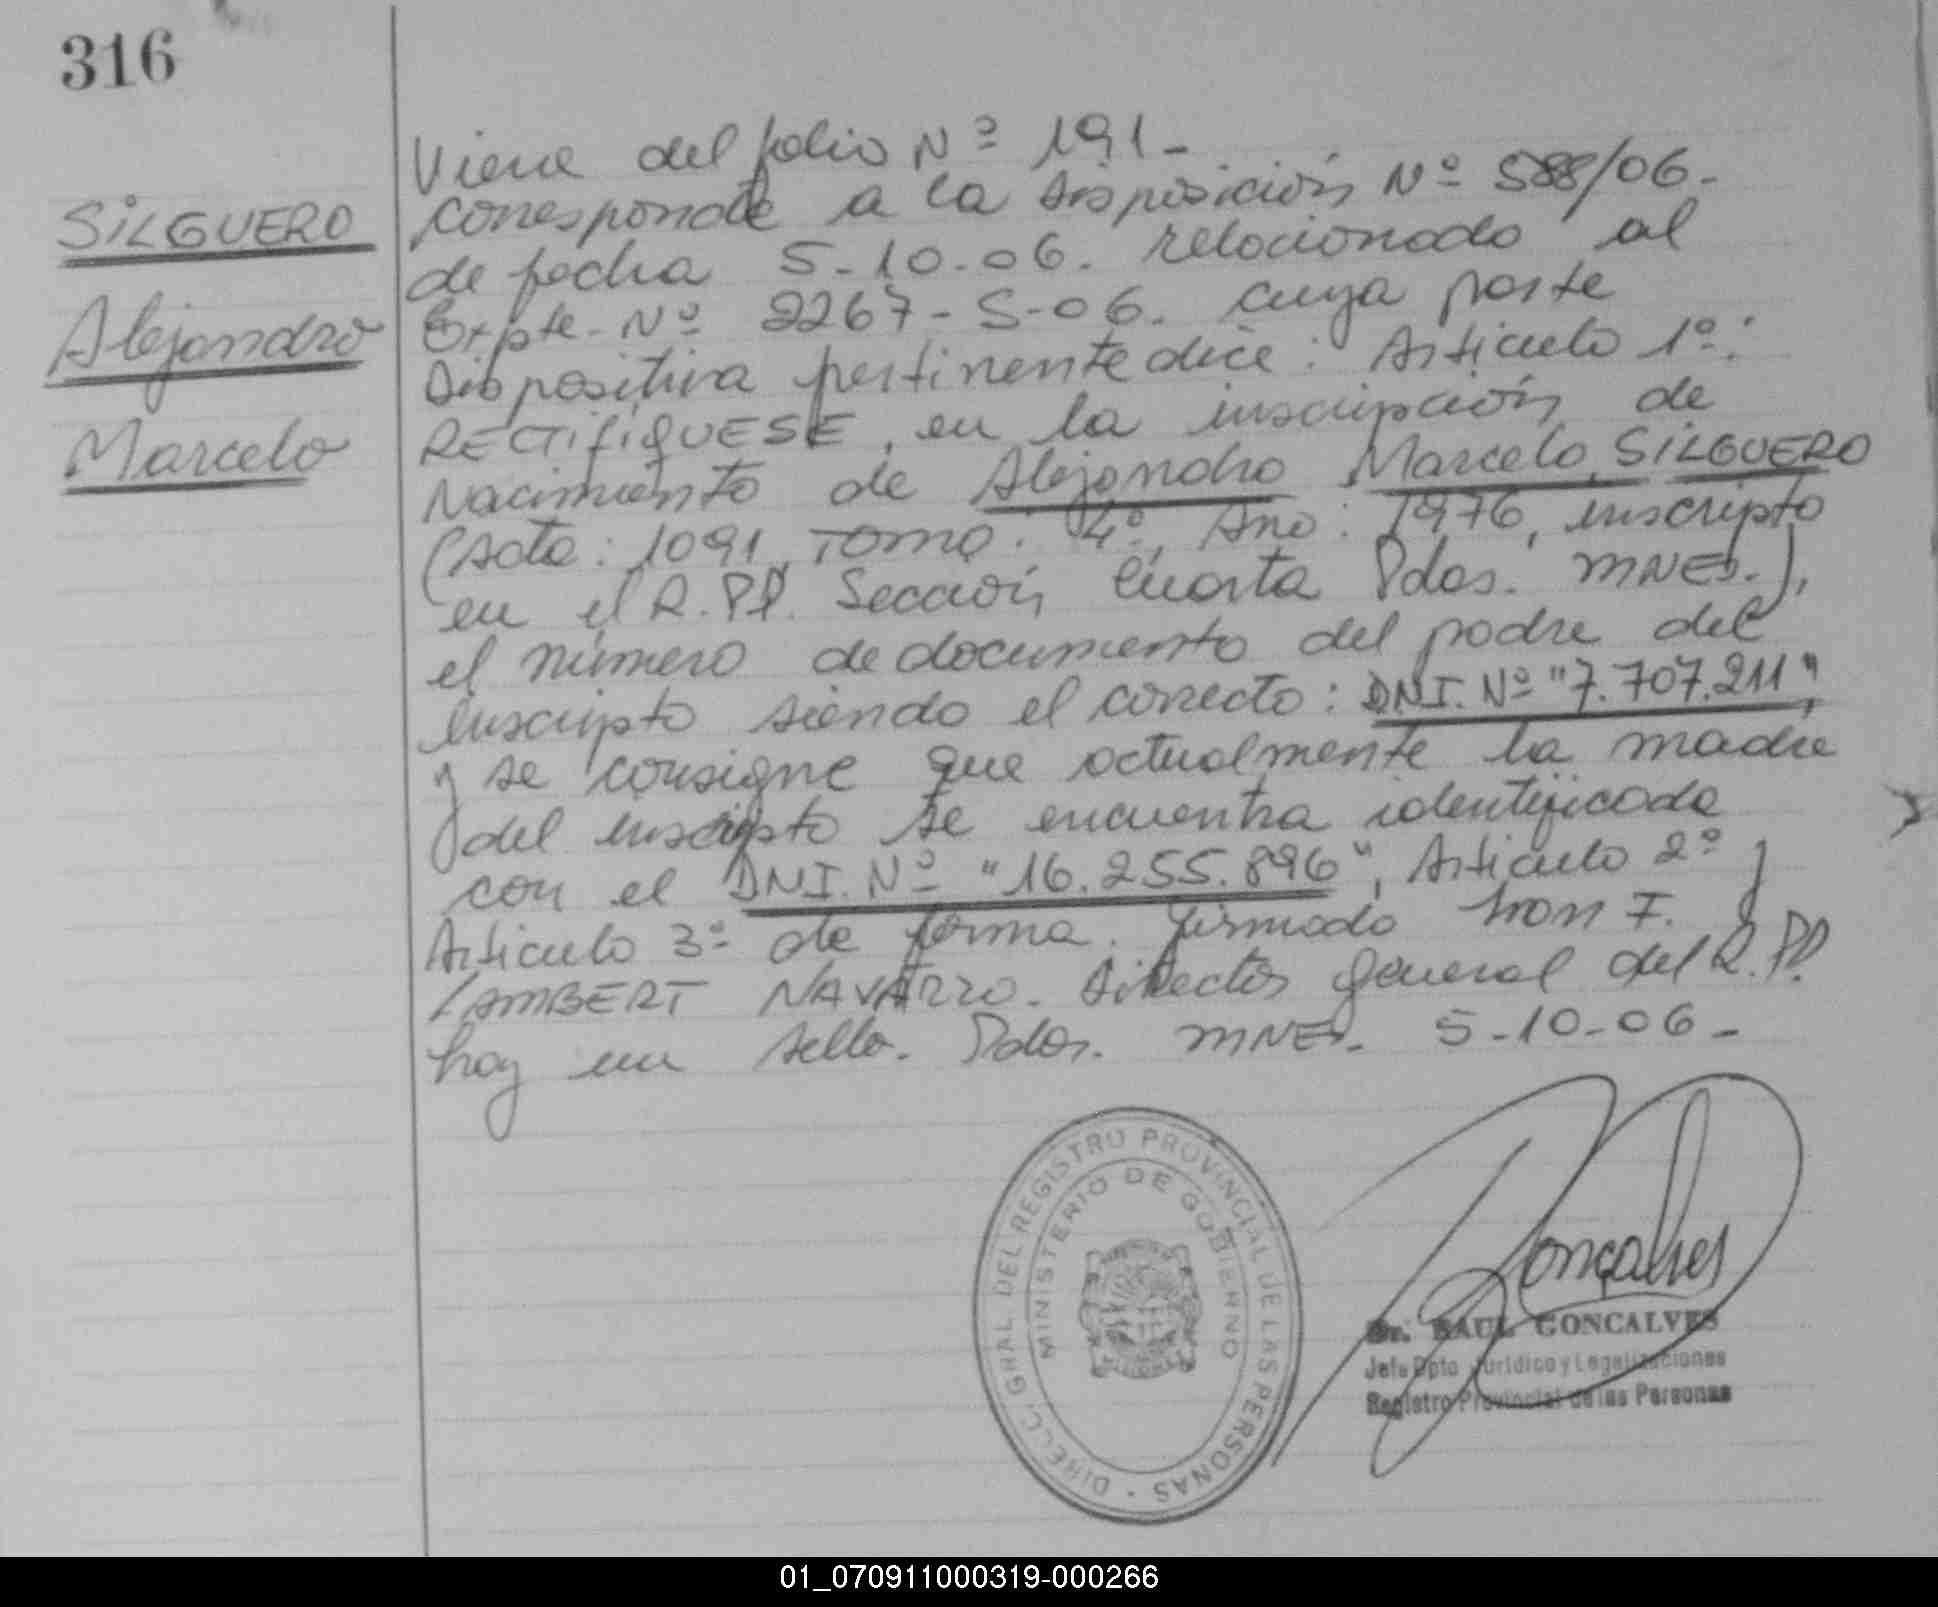 316
SILGUERO
Alejandro
Marcelo
Viene del folio Nº 191-
corresponde a la Disposición Nº 588/06-
de fecha 5-10-06. relacionado al
Expte-Nº 2267-S-06. cuya parte
Dispositiva pertinente dice: Articulo 1º:
RECTIFIQUESE, en la inscripción de
Nacimiento de Alejandro Marcelo SILGUERO
(Acta: 1091, TOMO: 4º, Año: 1976, inscripto
en el R.PP. Sección Cuarta Pdas. MNES.),
el número de documento del padre del
inscripto siendo el correcto: DNI. Nº "7.707.211",
y se consigne que actualmente la madre
del inscripto se encuentra identificada
con el DNI. Nº "16.255.896", Articulo 2º y
Articulo 3º de forma. firmado Ivon F.
LAMBERT NAVARRO. Director general del R.PP.
hay un sello. Pdas. MNES. 5-10-06-
DIRECC. GRAL. DEL REGISTRO PROVINCIAL DE LAS PERSONAS
MINISTERIO DE GOBIERNO
Goncalves
Dr. RAUL GONCALVES
Jefe Dpto Jurídico y Legalizaciones
Registro Provincial de las Personas
01_070911000319-000266